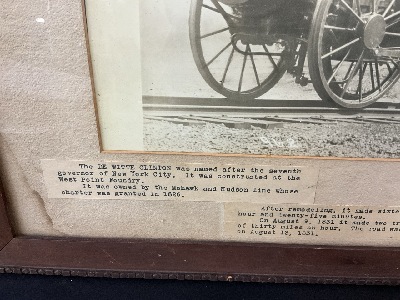 The DE WITTE CLINTON was named after the seventh
governor of New York City. It was constructed at the
West Point Foundry.
It was owned by the Mohawk and Hudson line whose
charter was granted in 1826.
After remodeling, it made sixte
hour and twenty-five minutes.
On August 9, 1831 it made two tr
of thirty miles an hour. The road was
on August 13, 1831.